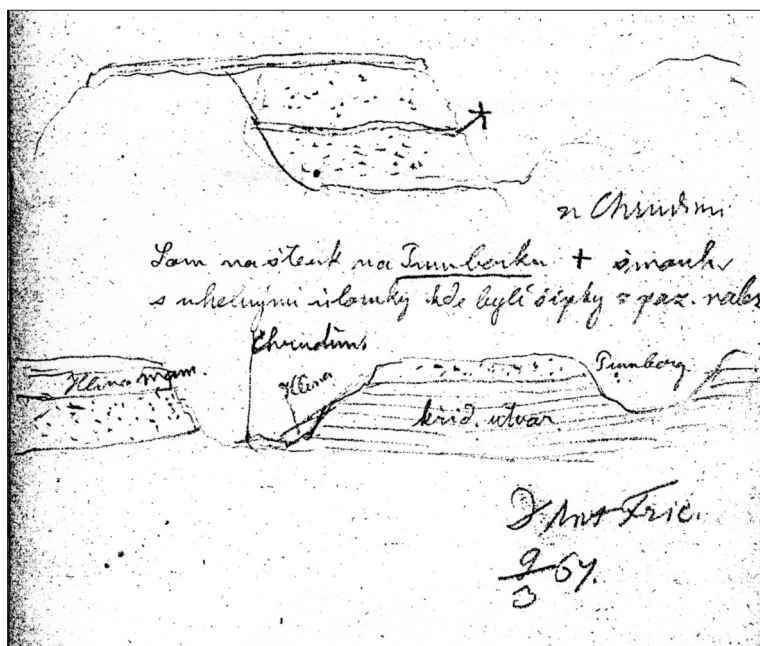 u Chrudimi
Lom na štěrk na Pumberku + šmouha
s uhelnými úlomky kde byli šipky z paz. nalez
Chrudim
Hlina mam.
Hlina
Pumberg
křid. utvar.
Dr Ant Fric.
9/3 67.